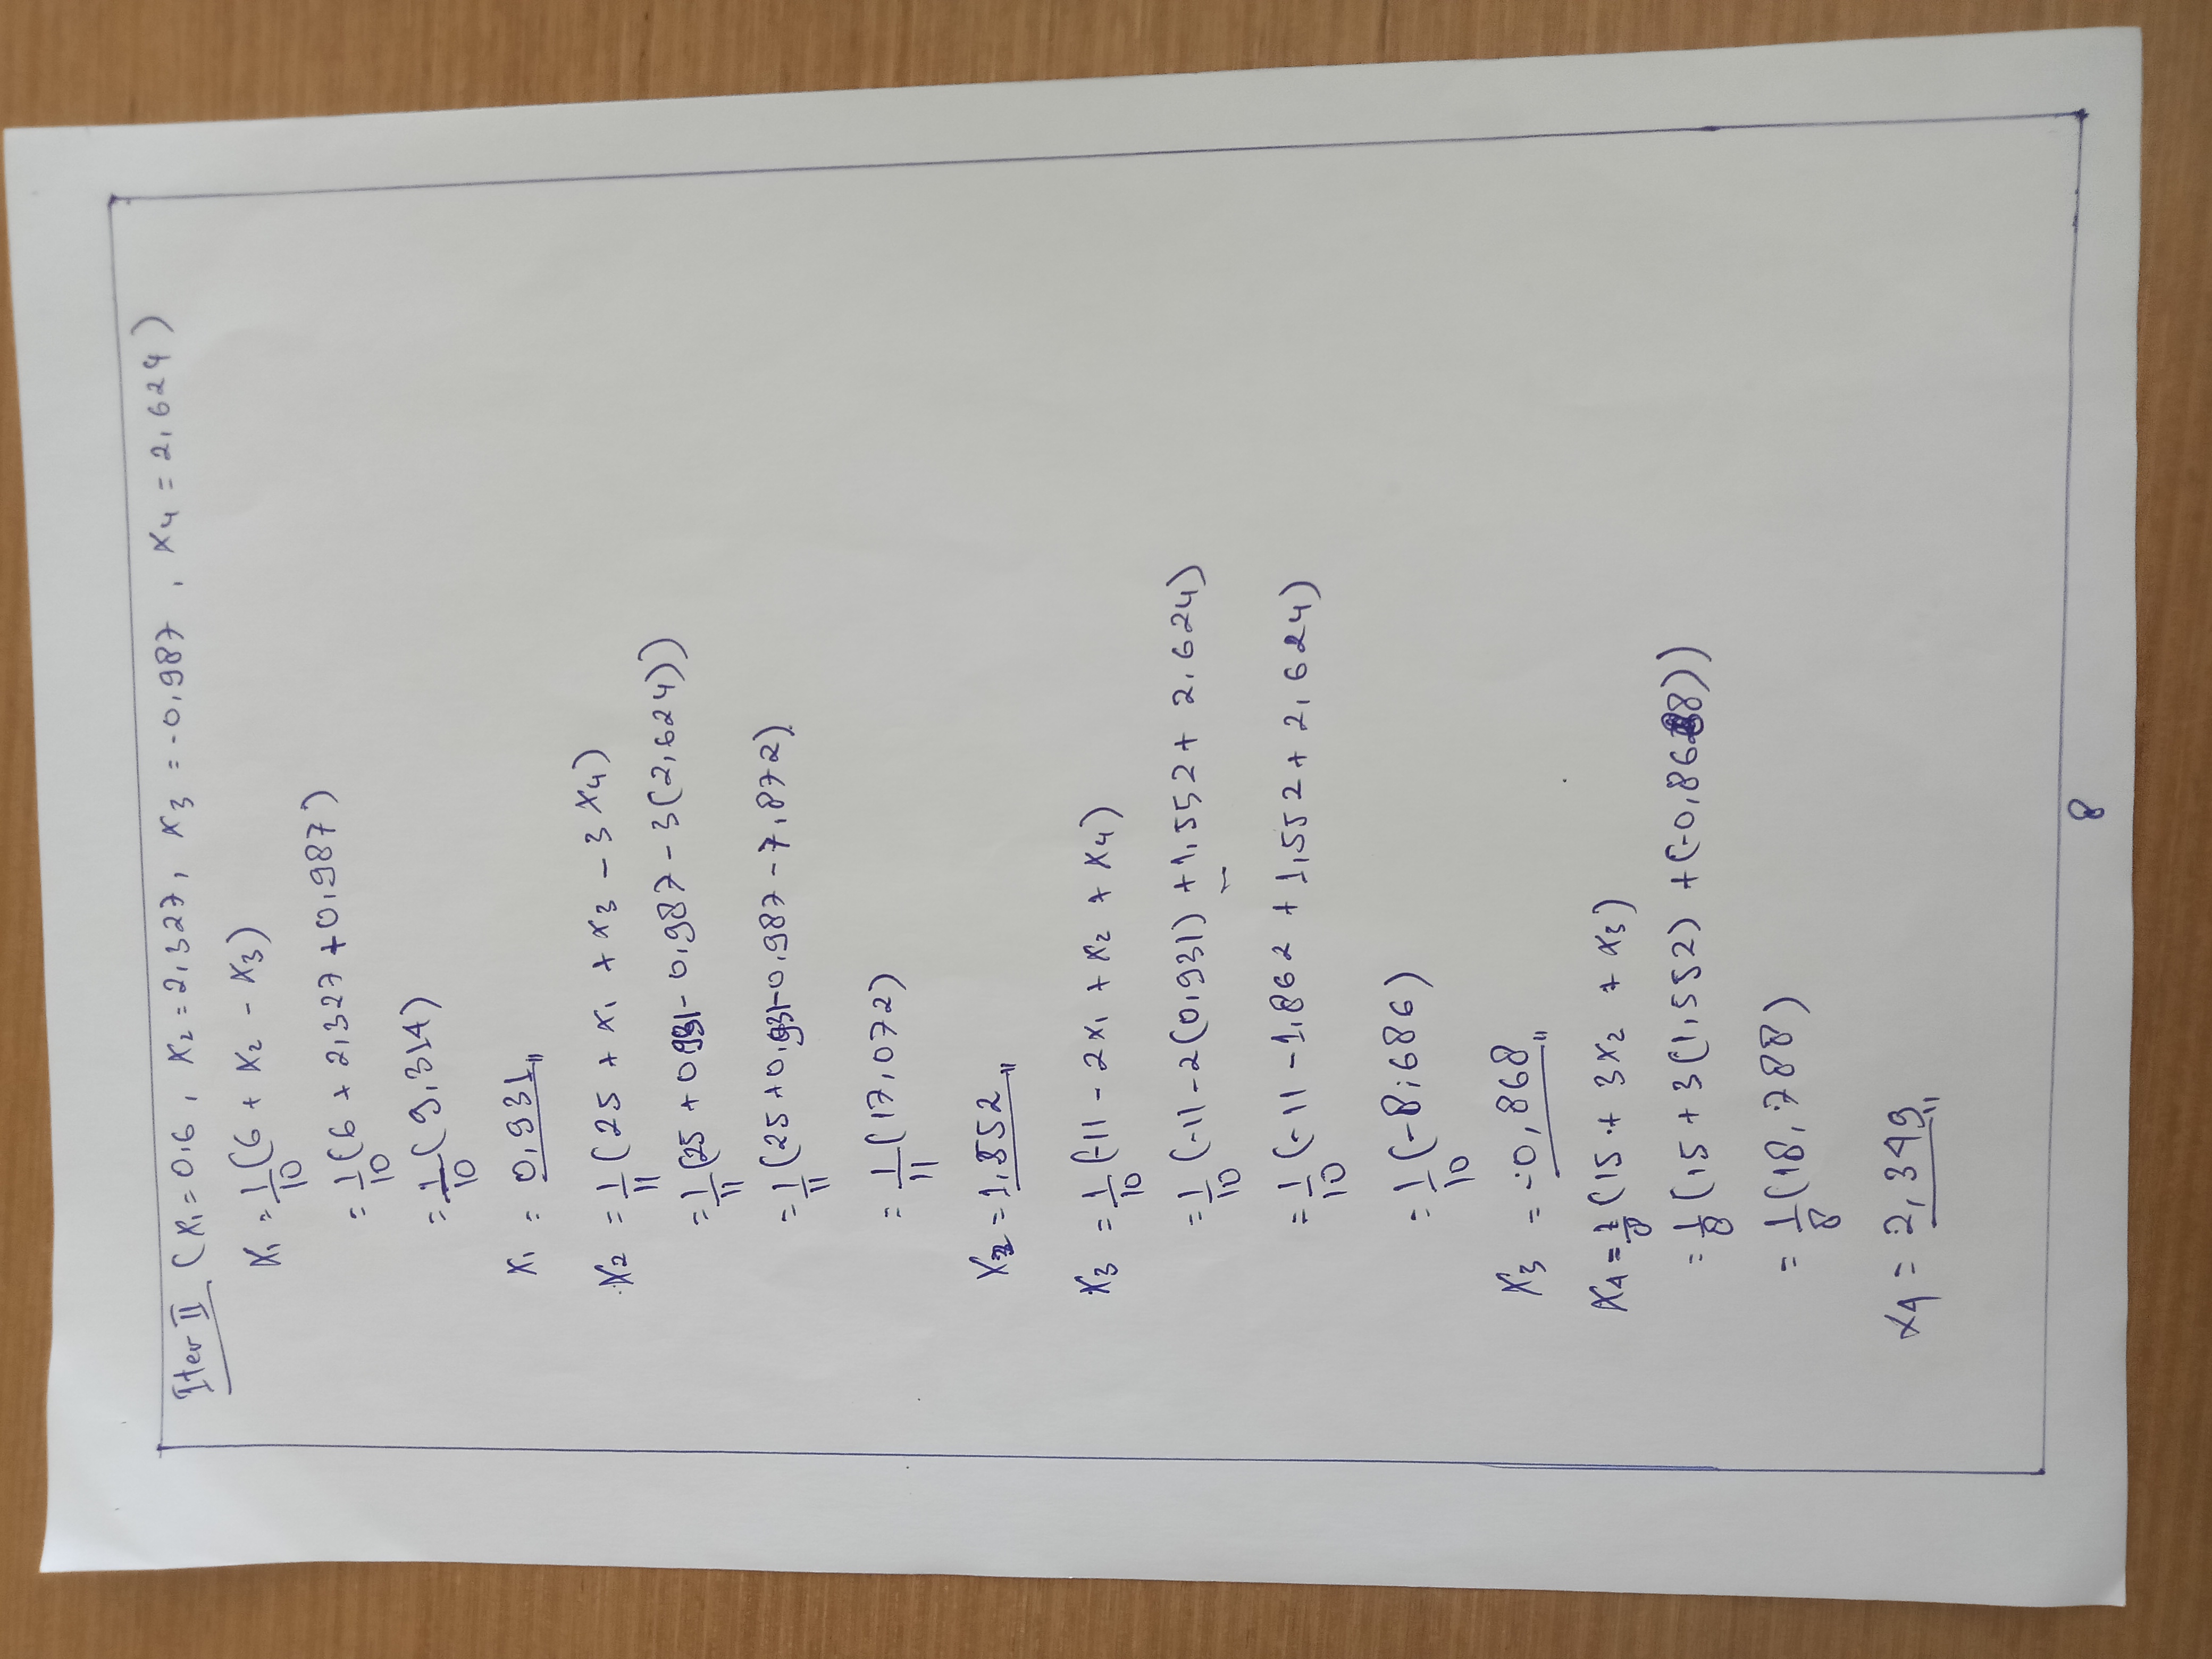 Iter II (x₁ = 0,6 , x₂ = 2,327, x₃ = -0,987 , x₄ = 2,624)
x₁ = 1/10 (6 + x₂ - x₃)
= 1/10 (6 + 2,327 + 0,987)
= 1/10 (9,314)
x₁ = 0,931
x₂ = 1/11 (25 + x₁ + x₃ - 3x₄)
= 1/11 (25 + 0,931 - 0,987 - 3(2,624))
= 1/11 (25 + 0,931 - 0,987 - 7,872)
= 1/11 (17,072)
x₂ = 1,552
x₃ = 1/10 (-11 - 2x₁ + x₂ + x₄)
= 1/10 (-11 - 2(0,931) + 1,552 + 2,624)
= 1/10 (-11 - 1,862 + 1,552 + 2,624)
= 1/10 (-8,686)
x₃ = -0,868
x₄ = 1/8 (15 + 3x₂ + x₃)
= 1/8 (15 + 3(1,552) + (-0,868))
= 1/8 (18,788)
x₄ = 2,349
8